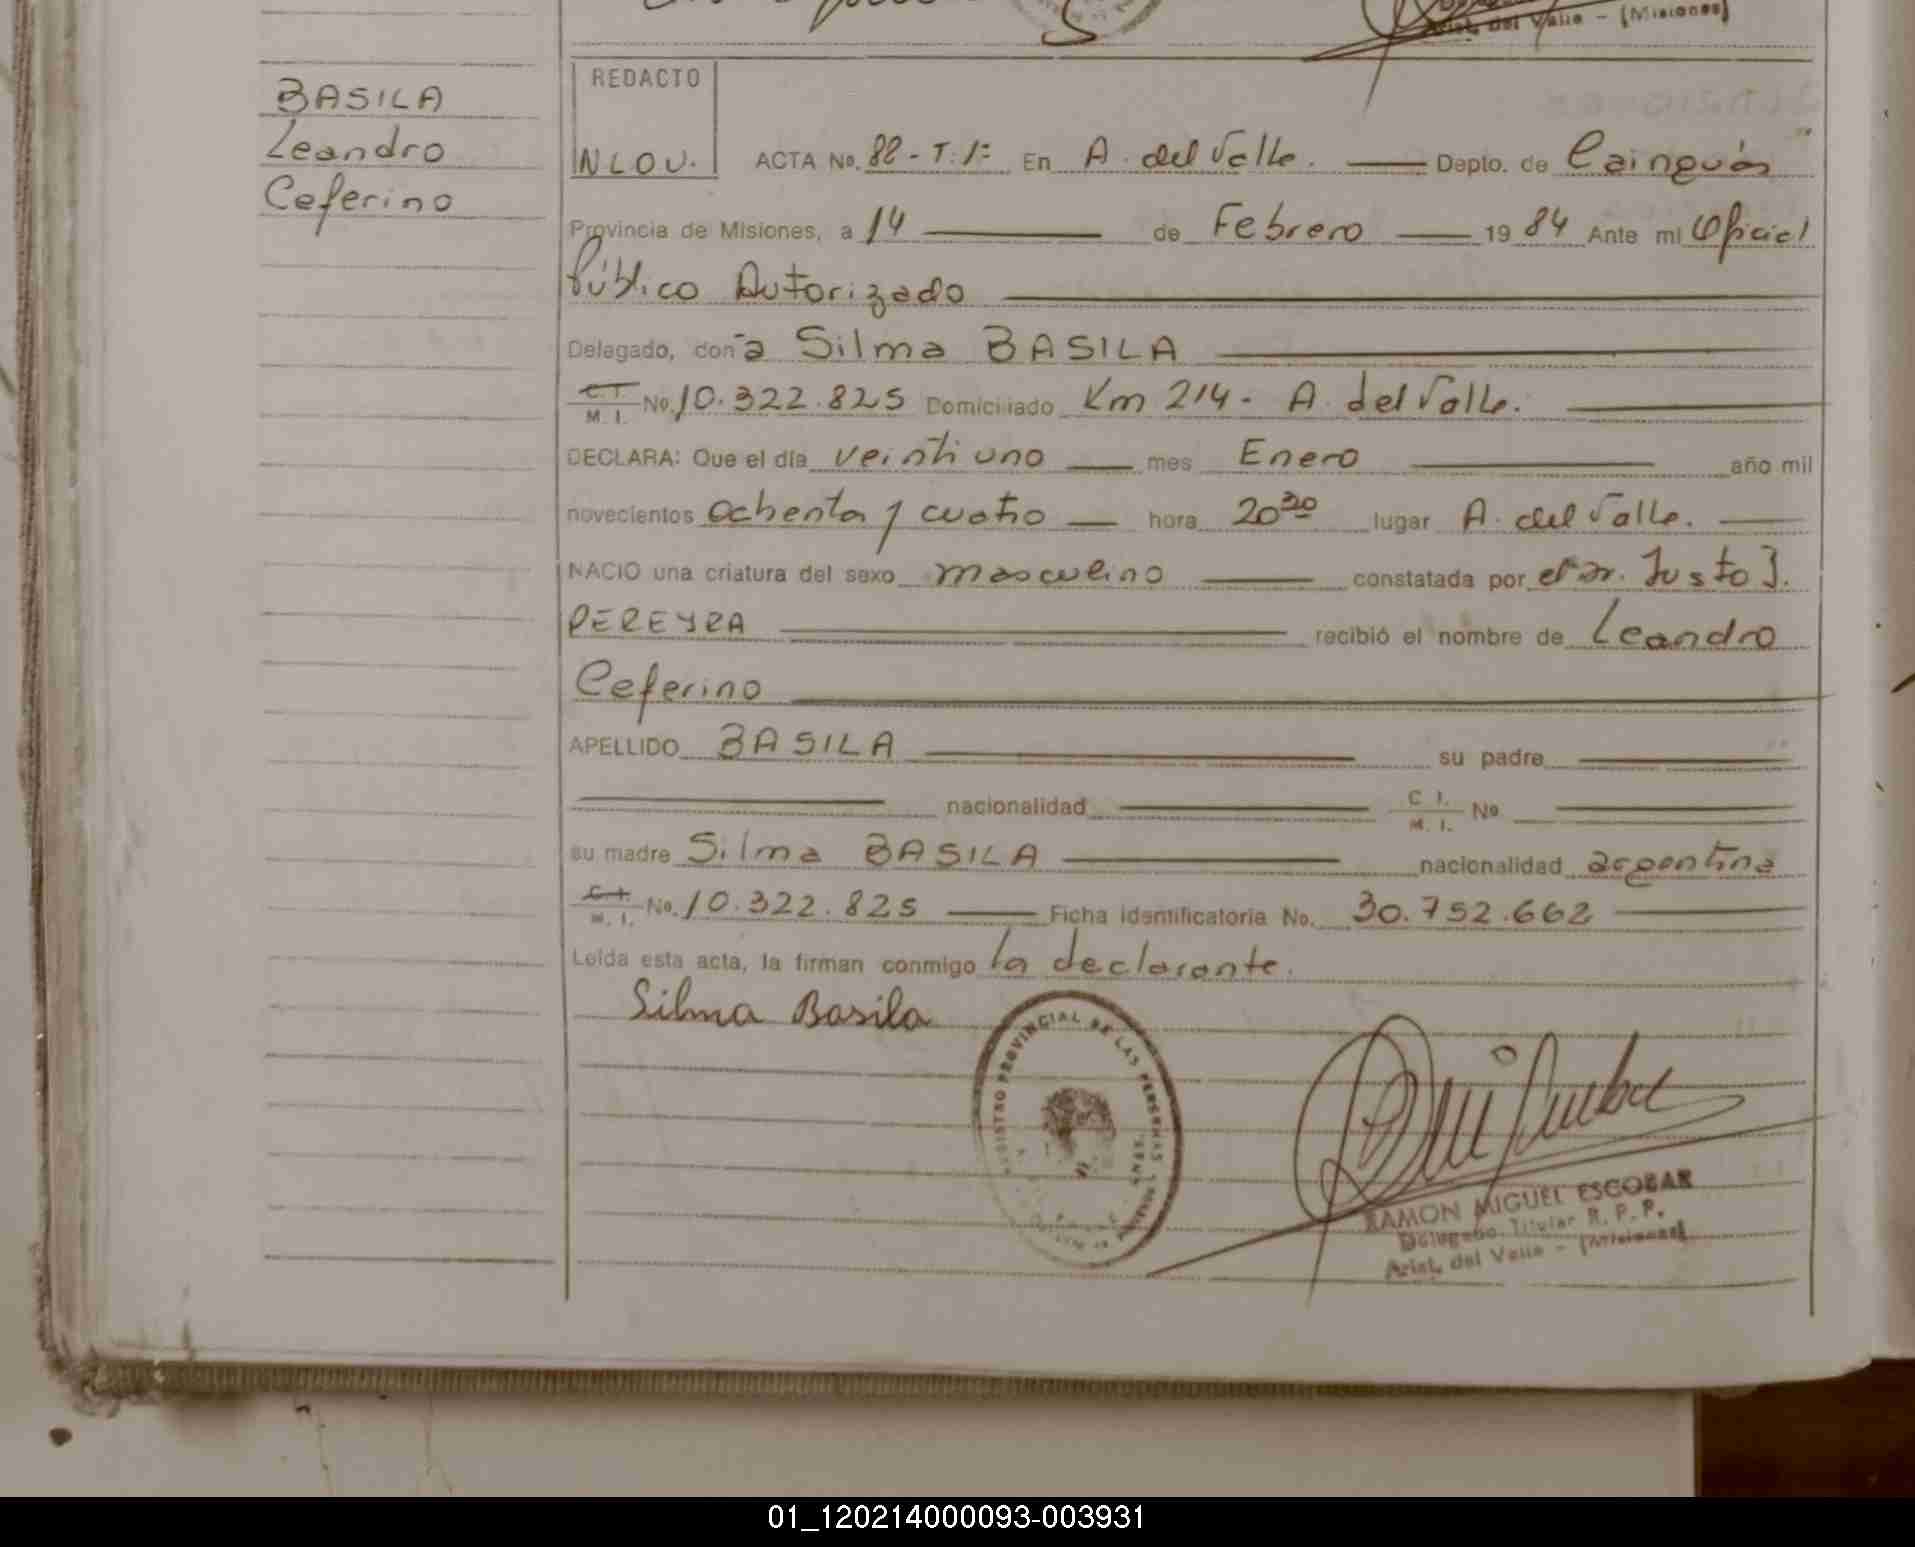 Arist. del Valle - (Misiones)
BASILA
Leandro
Ceferino
REDACTO
NLOV.
ACTA No. 82 - T. 1º En A. del Valle. Depto. de Cainguás
Provincia de Misiones, a 14 de Febrero 19 84 Ante mí Oficial
Público Autorizado
Delegado, don~a Silma BASILA
C.I. M.I. No. 10.322.825 Domiciliado Km 214 - A. del Valle.
DECLARA: Que el día veintiuno mes Enero año mil
novecientos ochenta y cuatro hora 20 30 lugar A. del Valle.
NACIO una criatura del sexo masculino constatada por el Dr. Justo J.
PEREYRA recibió el nombre de Leandro
Ceferino
APELLIDO BASILA su padre
nacionalidad C.I. M.I. No
su madre Silma BASILA nacionalidad argentina
C.I. M.I. No. 10.322.825 Ficha identificatoria No. 30.752.662
Leída esta acta, la firman conmigo la declarante.
Silma Basila
REGISTRO PROVINCIAL DE LAS PERSONAS
RAMON MIGUEL ESCOBAR
Delegado Titular R. P. P.
Arist. del Valle - (Misiones)
01_120214000093-003931